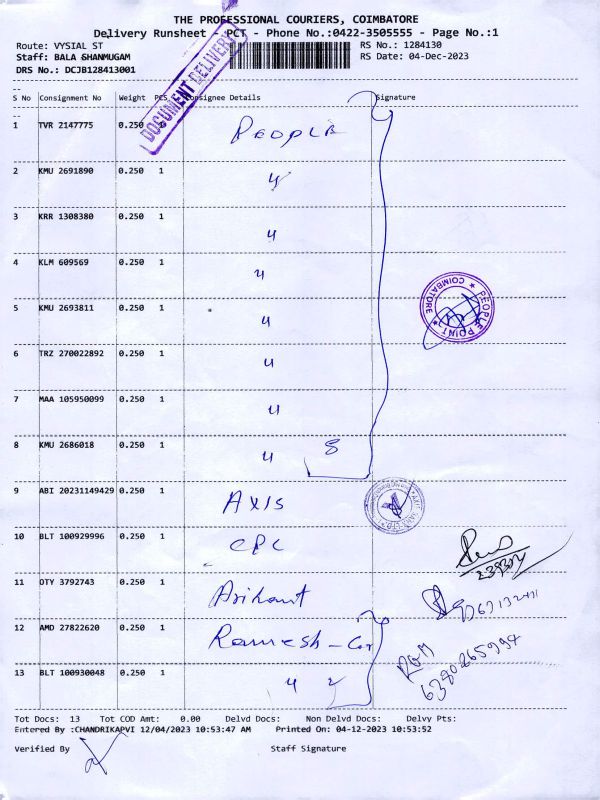 THE PROFESSIONAL COURIERS, COIMBATORE
Delivery Runsheet - PCT - Phone No.:0422-3505555 - Page No.:1
Route: VYSIAL ST RS No.: 1284130
Staff: BALA SHANMUGAM RS Date: 04-Dec-2023
DRS No.: DCJB128413001
DOCUMENT DELIVERY
S No Consignment No Weight PCS Consignee Details Signature
1 TVR 2147775 0.250 PEOPLE
2 KMU 2691890 0.250 1 "
3 KRR 1308380 0.250 1 "
4 KLM 609569 0.250 1 "
5 KMU 2693811 0.250 1 "
PEOPLE POINT * COIMBATORE *
6 TRZ 270022892 0.250 1 "
7 MAA 105950099 0.250 1 "
8 KMU 2686018 0.250 1 " 8
9 ABI 20231149429 0.250 1 AXIS
10 BLT 100929996 0.250 1 CPC
11 OTY 3792743 0.250 1 Arihant
12 AMD 27822620 0.250 1 Ramesh - Car
13 BLT 100930048 0.250 1 " 2
Tot Docs: 13 Tot COD Amt: 0.00 Delvd Docs: Non Delvd Docs: Delvy Pts:
Entered By :CHANDRIKAPVI 12/04/2023 10:53:47 AM Printed On: 04-12-2023 10:53:52
Verified By Staff Signature